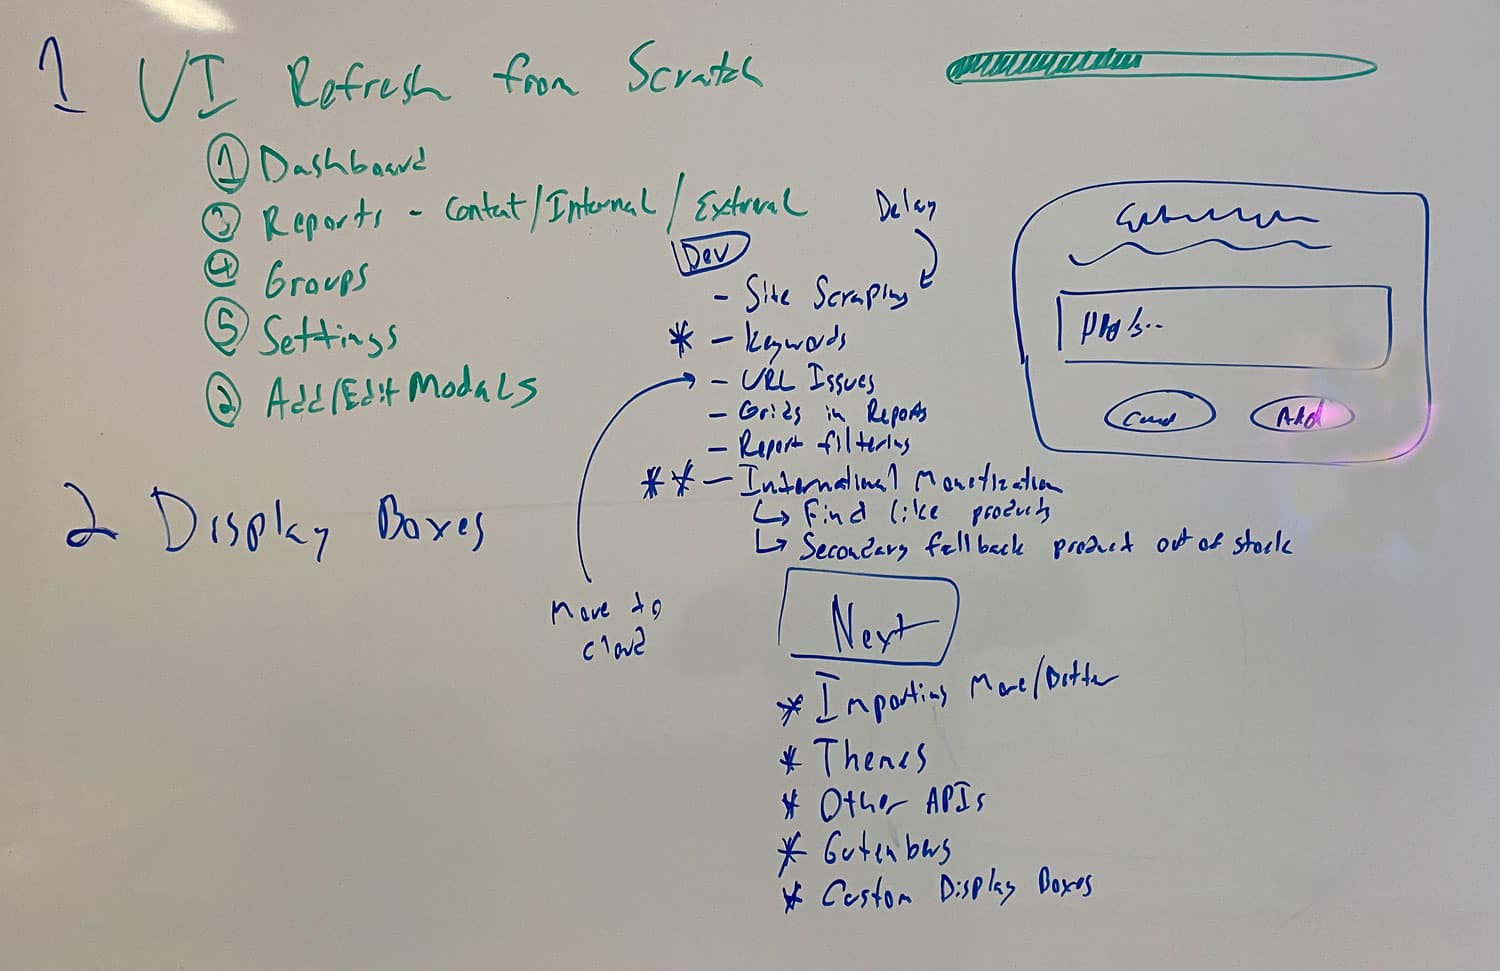 1 UI Refresh from Scratch
① Dashboard
③ Reports - Content/Internal/External
④ Groups
⑤ Settings
② Add/Edit Modals
2 Display Boxes
Delay
Dev
- Site Scraping
* - Keywords
- URL Issues
- Grids in Reports
- Report filtering
** - International Monetization
↳ Find like products
↳ Secondary fallback product out of stock
Move to
cloud
Next
* Importing More/Better
* Themes
* Other APIs
* Gutenberg
* Custom Display Boxes
Add